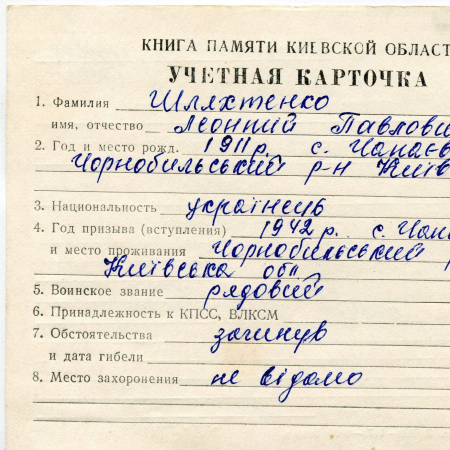 КНИГА ПАМЯТИ КИЕВСКОЙ ОБЛАСТ
УЧЕТНАЯ КАРТОЧКА
1. Фамилия Шляхтенко
имя, отчество Леонтій Павлови
2. Год и место рожд. 1911 р. с. Чапаєв
Чорнобильський р-н Київ
3. Национальность українець
4. Год призыва (вступления) 1942 р. с. Чапа
и место проживания Чорнобильський р
Київська обл
5. Воинское звание рядовий
6. Принадлежность к КПСС, ВЛКСМ
7. Обстоятельства загинув
и дата гибели
8. Место захоронения не відомо